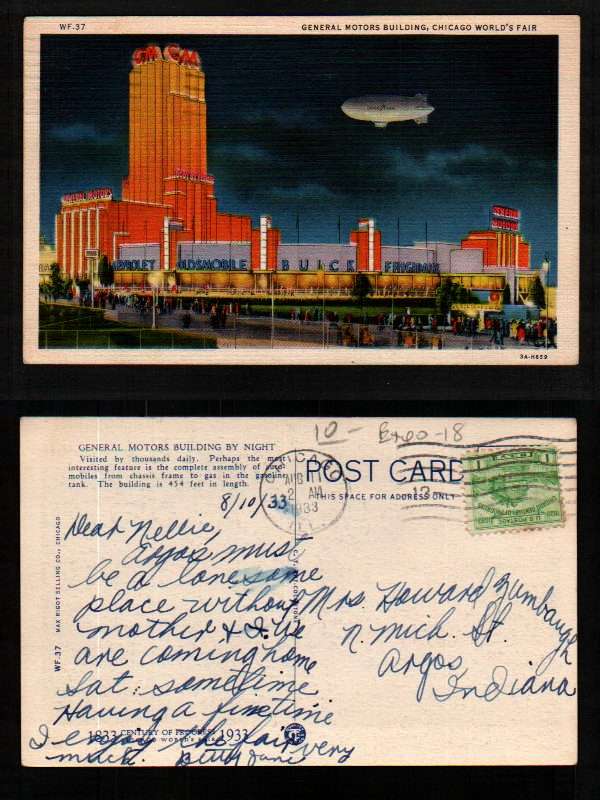 WF.37
GENERAL MOTORS BUILDING, CHICAGO WORLD'S FAIR
GM GM
GENERAL MOTORS
CHEVROLET OLDSMOBILE BUICK FRIGIDAIRE
3A-H859
10- Expo-18
GENERAL MOTORS BUILDING BY NIGHT
Visited by thousands daily. Perhaps the most
interesting feature is the complete assembly of auto-
mobiles from chassis frame to gas in the gasoline
tank. The building is 454 feet in length.
CHICAGO
AUG
2 AM
1933
ILL.
POST CARD
THIS SPACE FOR ADDRESS ONLY
8/10/33
Dear Nellie,
Argos must
be a lonesome
place without
mother & I. We
are coming home
Sat. sometime
Having a fine time
I enjoy the fair very
much. Betty Jane
Mrs. Howard Zumbaugh
N. Mich. St.
Argos
Indiana
1833 CENTURY OF PROGRESS 1933
CHICAGO WORLD'S FAIR
WF.37
MAX RIGOT SELLING CO., CHICAGO